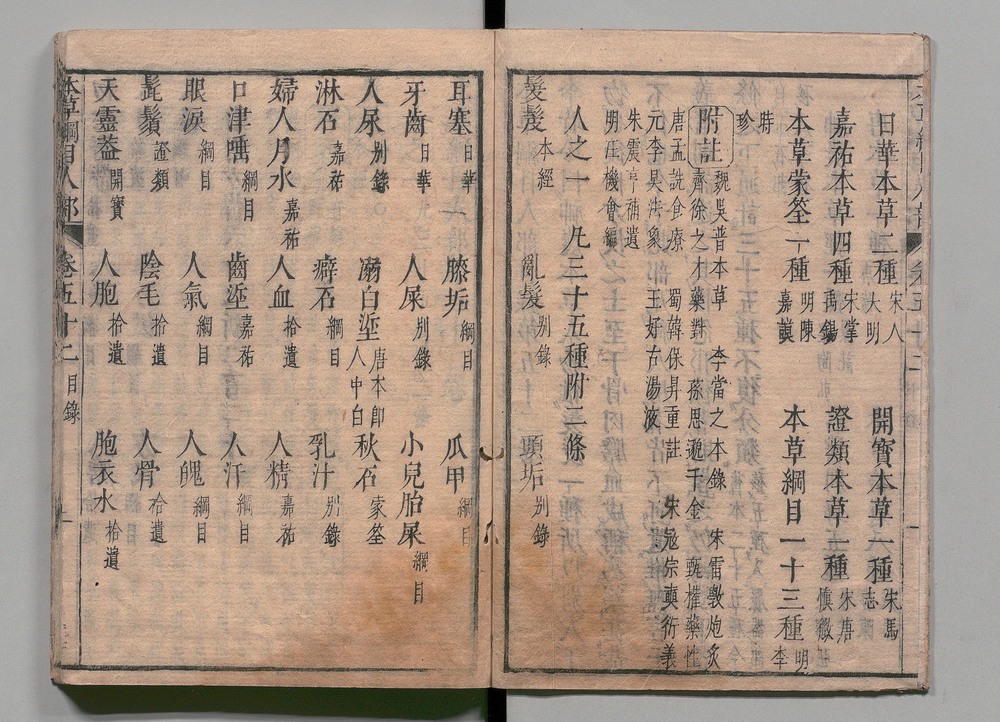 日華本草二種 宋人大明 開寶本草一種 宋馬志
嘉祐本草四種 宋掌禹錫 證類本草一種 宋唐慎微
本草蒙筌一種 明陳嘉謨 本草綱目一十三種 明李
時
珍
附註 魏吳普本草 李當之本錄 宋雷斅炮炙
齊徐之才藥對 孫思邈千金 甄權藥性
唐孟詵食療 蜀韓保昇重註 宋寇宗奭衍義
元李杲法象 王好古湯液
朱震亨補遺
明汪機會編
人之一 凡三十五種附二條
髮髲 本經 亂髮 別錄 頭垢 別錄
耳塞 日華 膝垢 綱目 瓜甲 綱目
牙齒 日華 人屎 別錄 小兒胎屎 綱目
人尿 別錄 溺白垽 唐本即人中白 秋石 蒙筌
淋石 嘉祐 癖石 綱目 乳汁 別錄
婦人月水 嘉祐 人血 拾遺 人精 嘉祐
口津唾 綱目 齒垽 嘉祐 人汗 綱目
眼淚 綱目 人氣 綱目 人魄 綱目
髭鬚 證類 陰毛 拾遺 人骨 拾遺
天靈葢 開寶 人胞 拾遺 胞衣水 拾遺
本草綱目人部 卷五十二 目錄 一